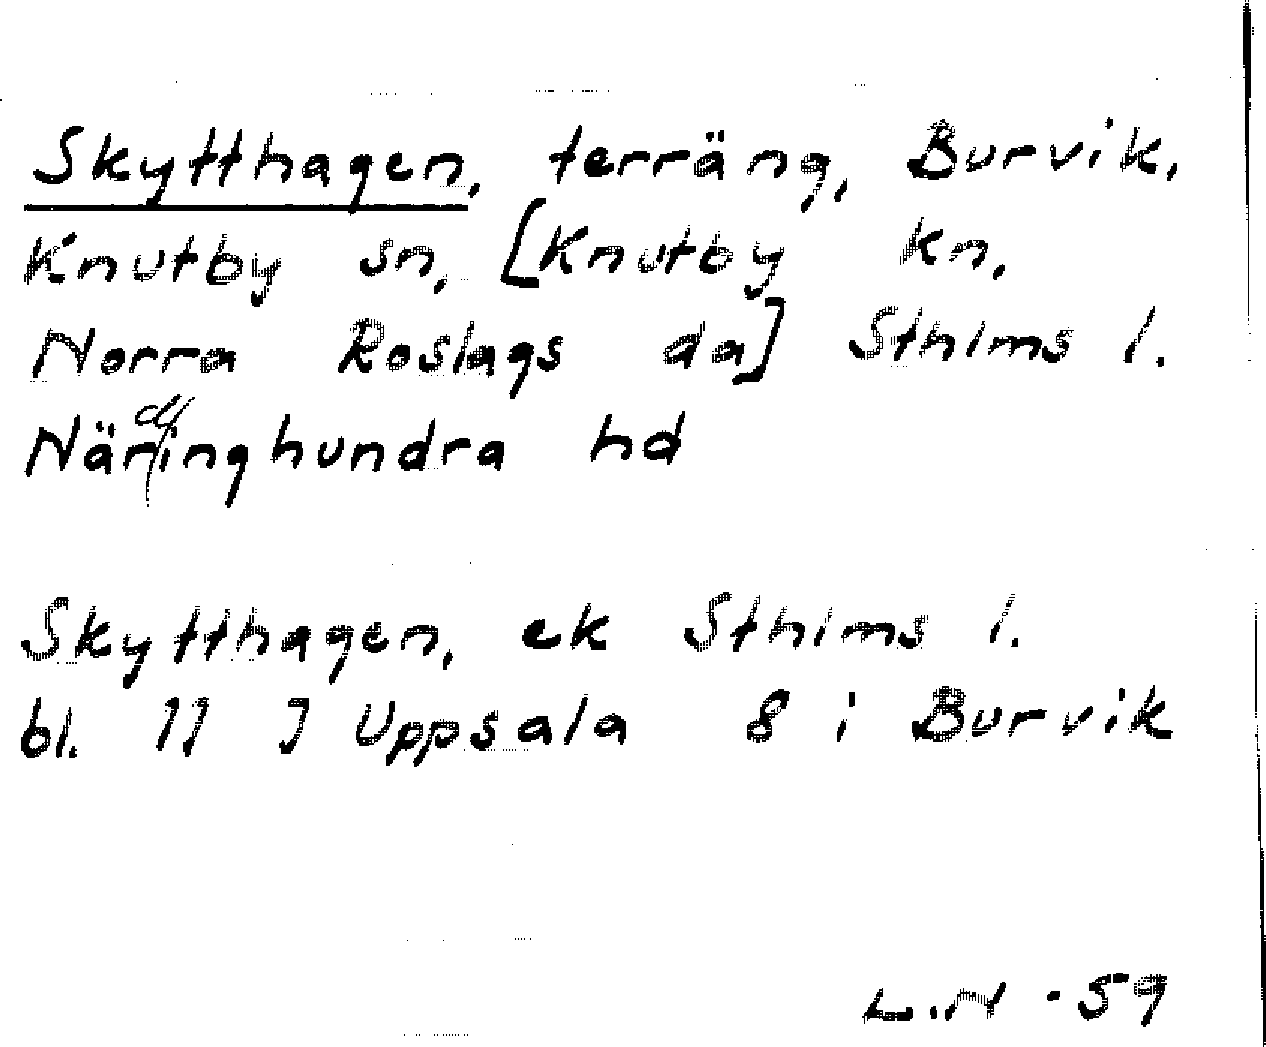 Skytthagen, terräng, Burvik,
Knutby sn, [Knutby kn,
Norra Roslags da] Sthlms l.
Närdinghundra hd
Skytthagen, ek Sthlms l.
bl. 11 J Uppsala 8 i Burvik
L.N -59